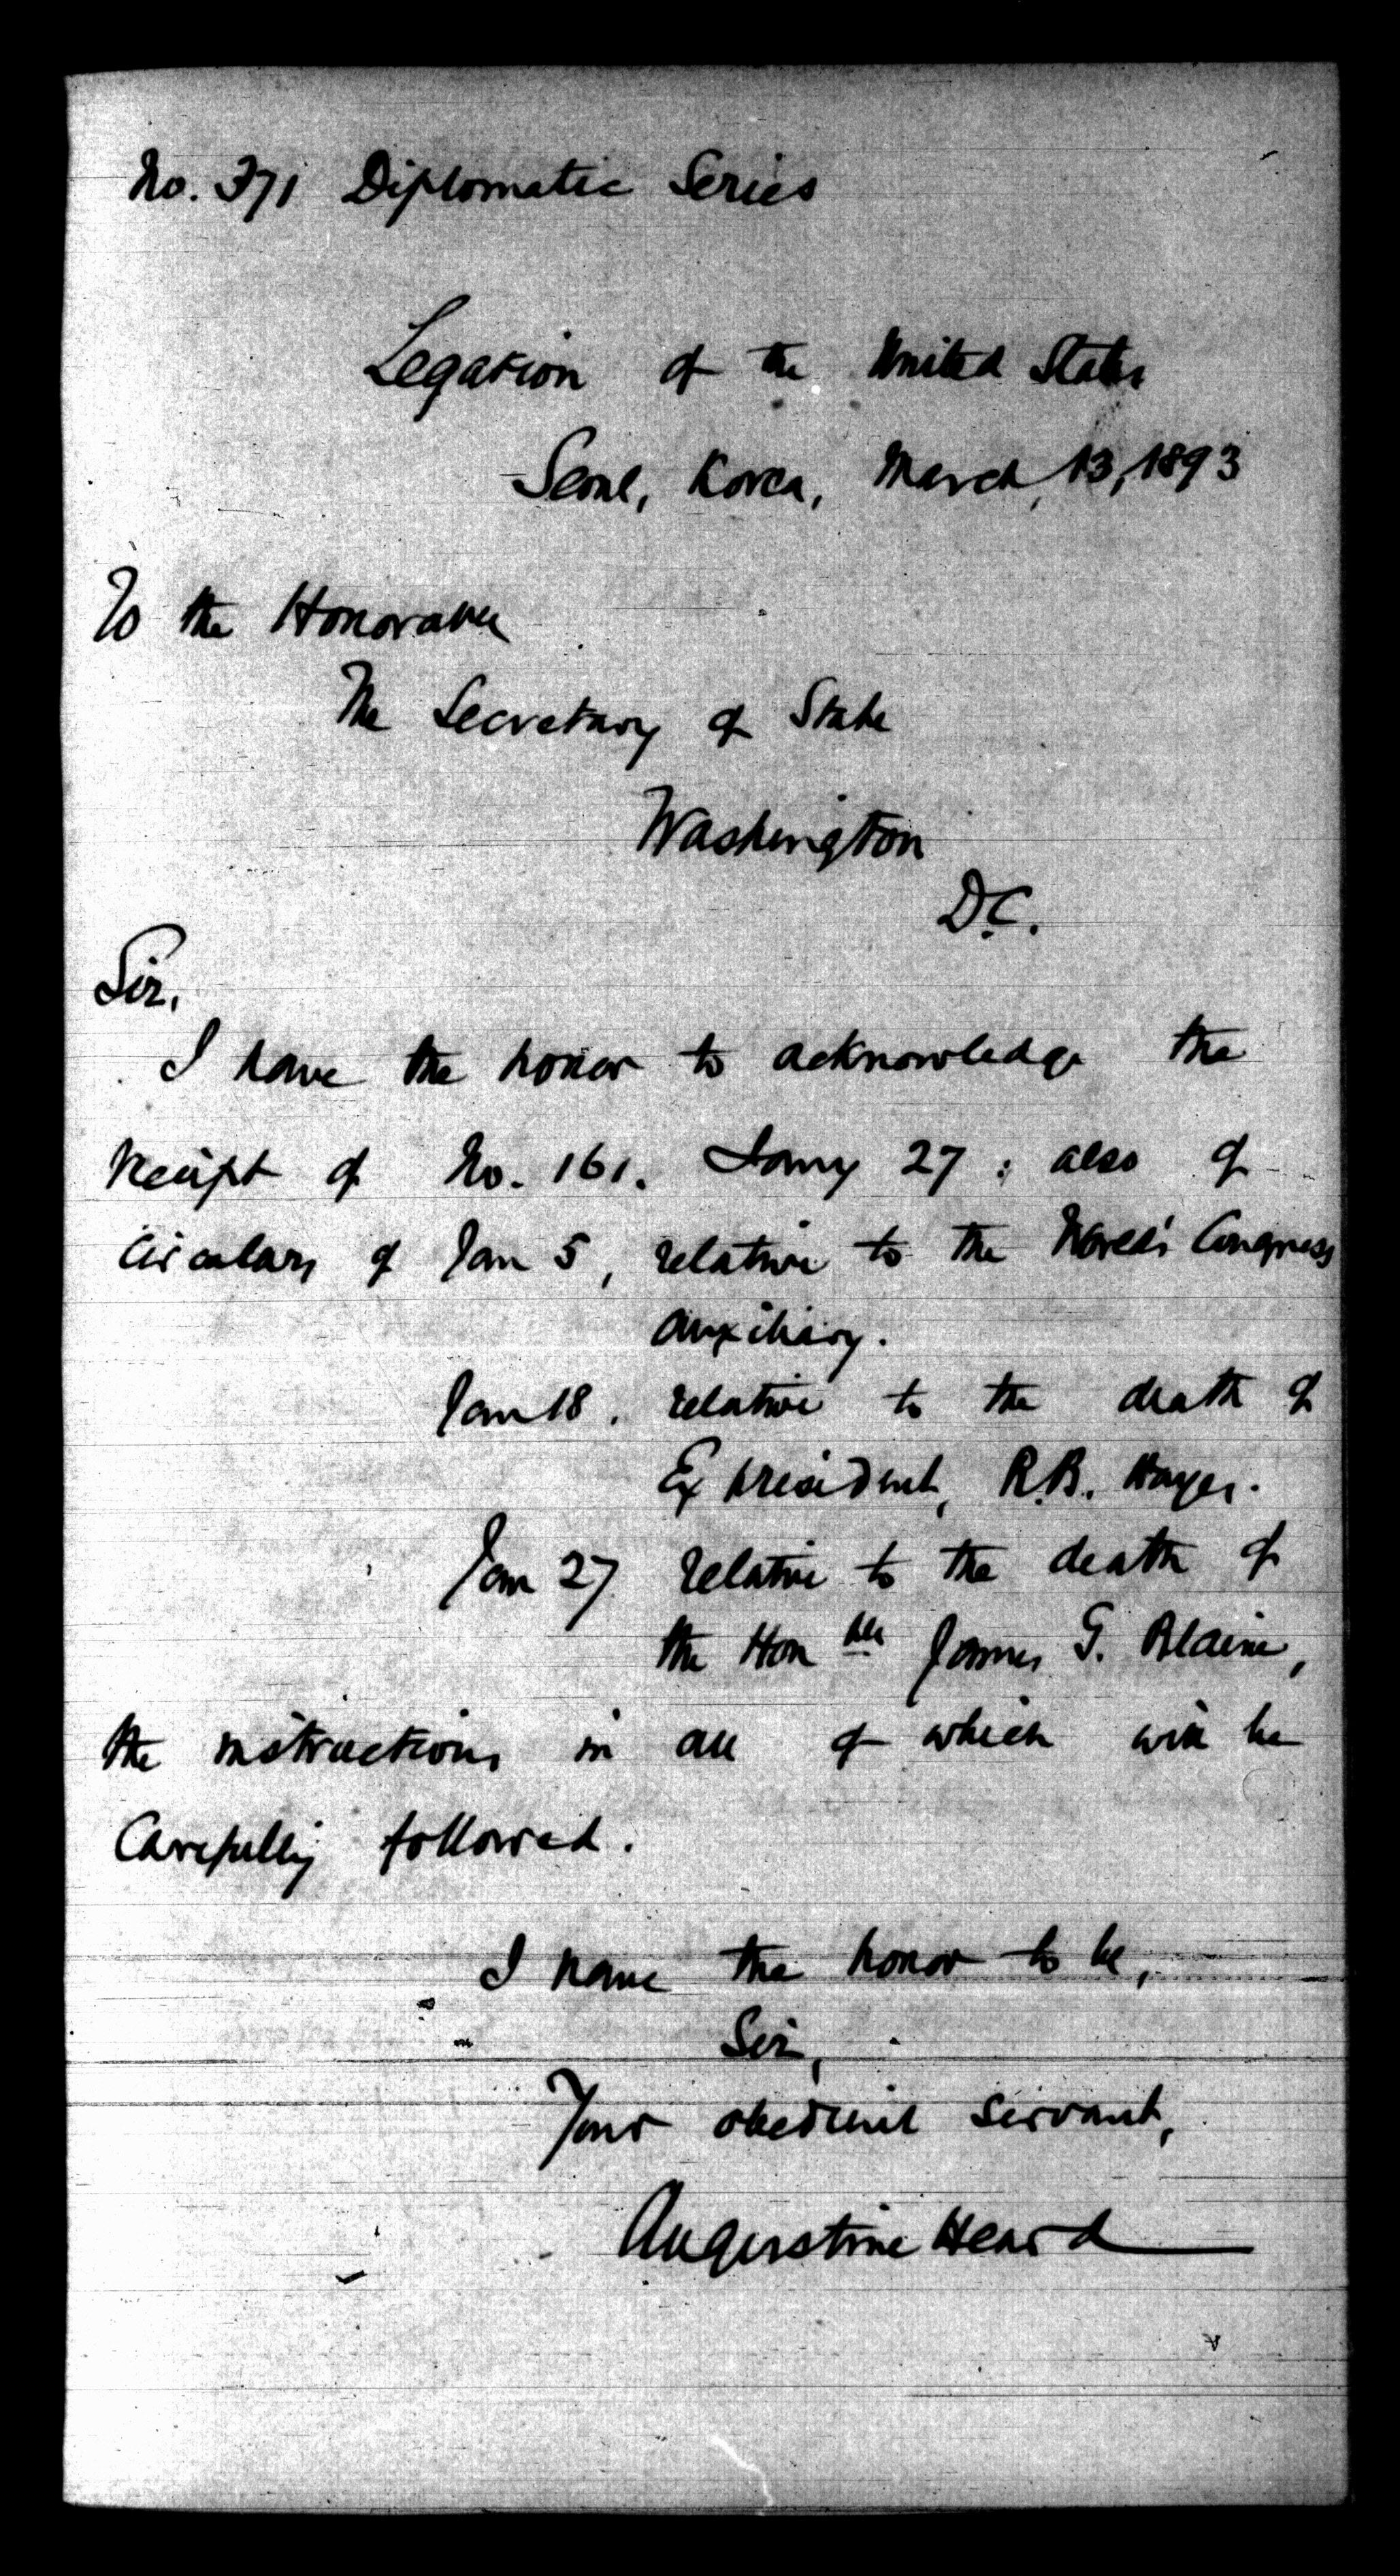 No. 371 Diplomatic Series
Legation of the United States
Seoul, Korea, March 13, 1893
To the Honorable
The Secretary of State
Washington
D.C.
Sir,
I have the honor to acknowledge the
receipt of No. 161. Jany 27 : also of
Circulars of Jan 5, relative to the World's Congress
Auxiliary.
Jan 18. relative to the death of
Ex president, R.B. Hayes.
Jan 27 relative to the death of
the Honble James G. Blaine,
the instructions in all of which will be
Carefully followed.
I have the honor to be,
Sir,
Your obedient servant,
Augustine Heard